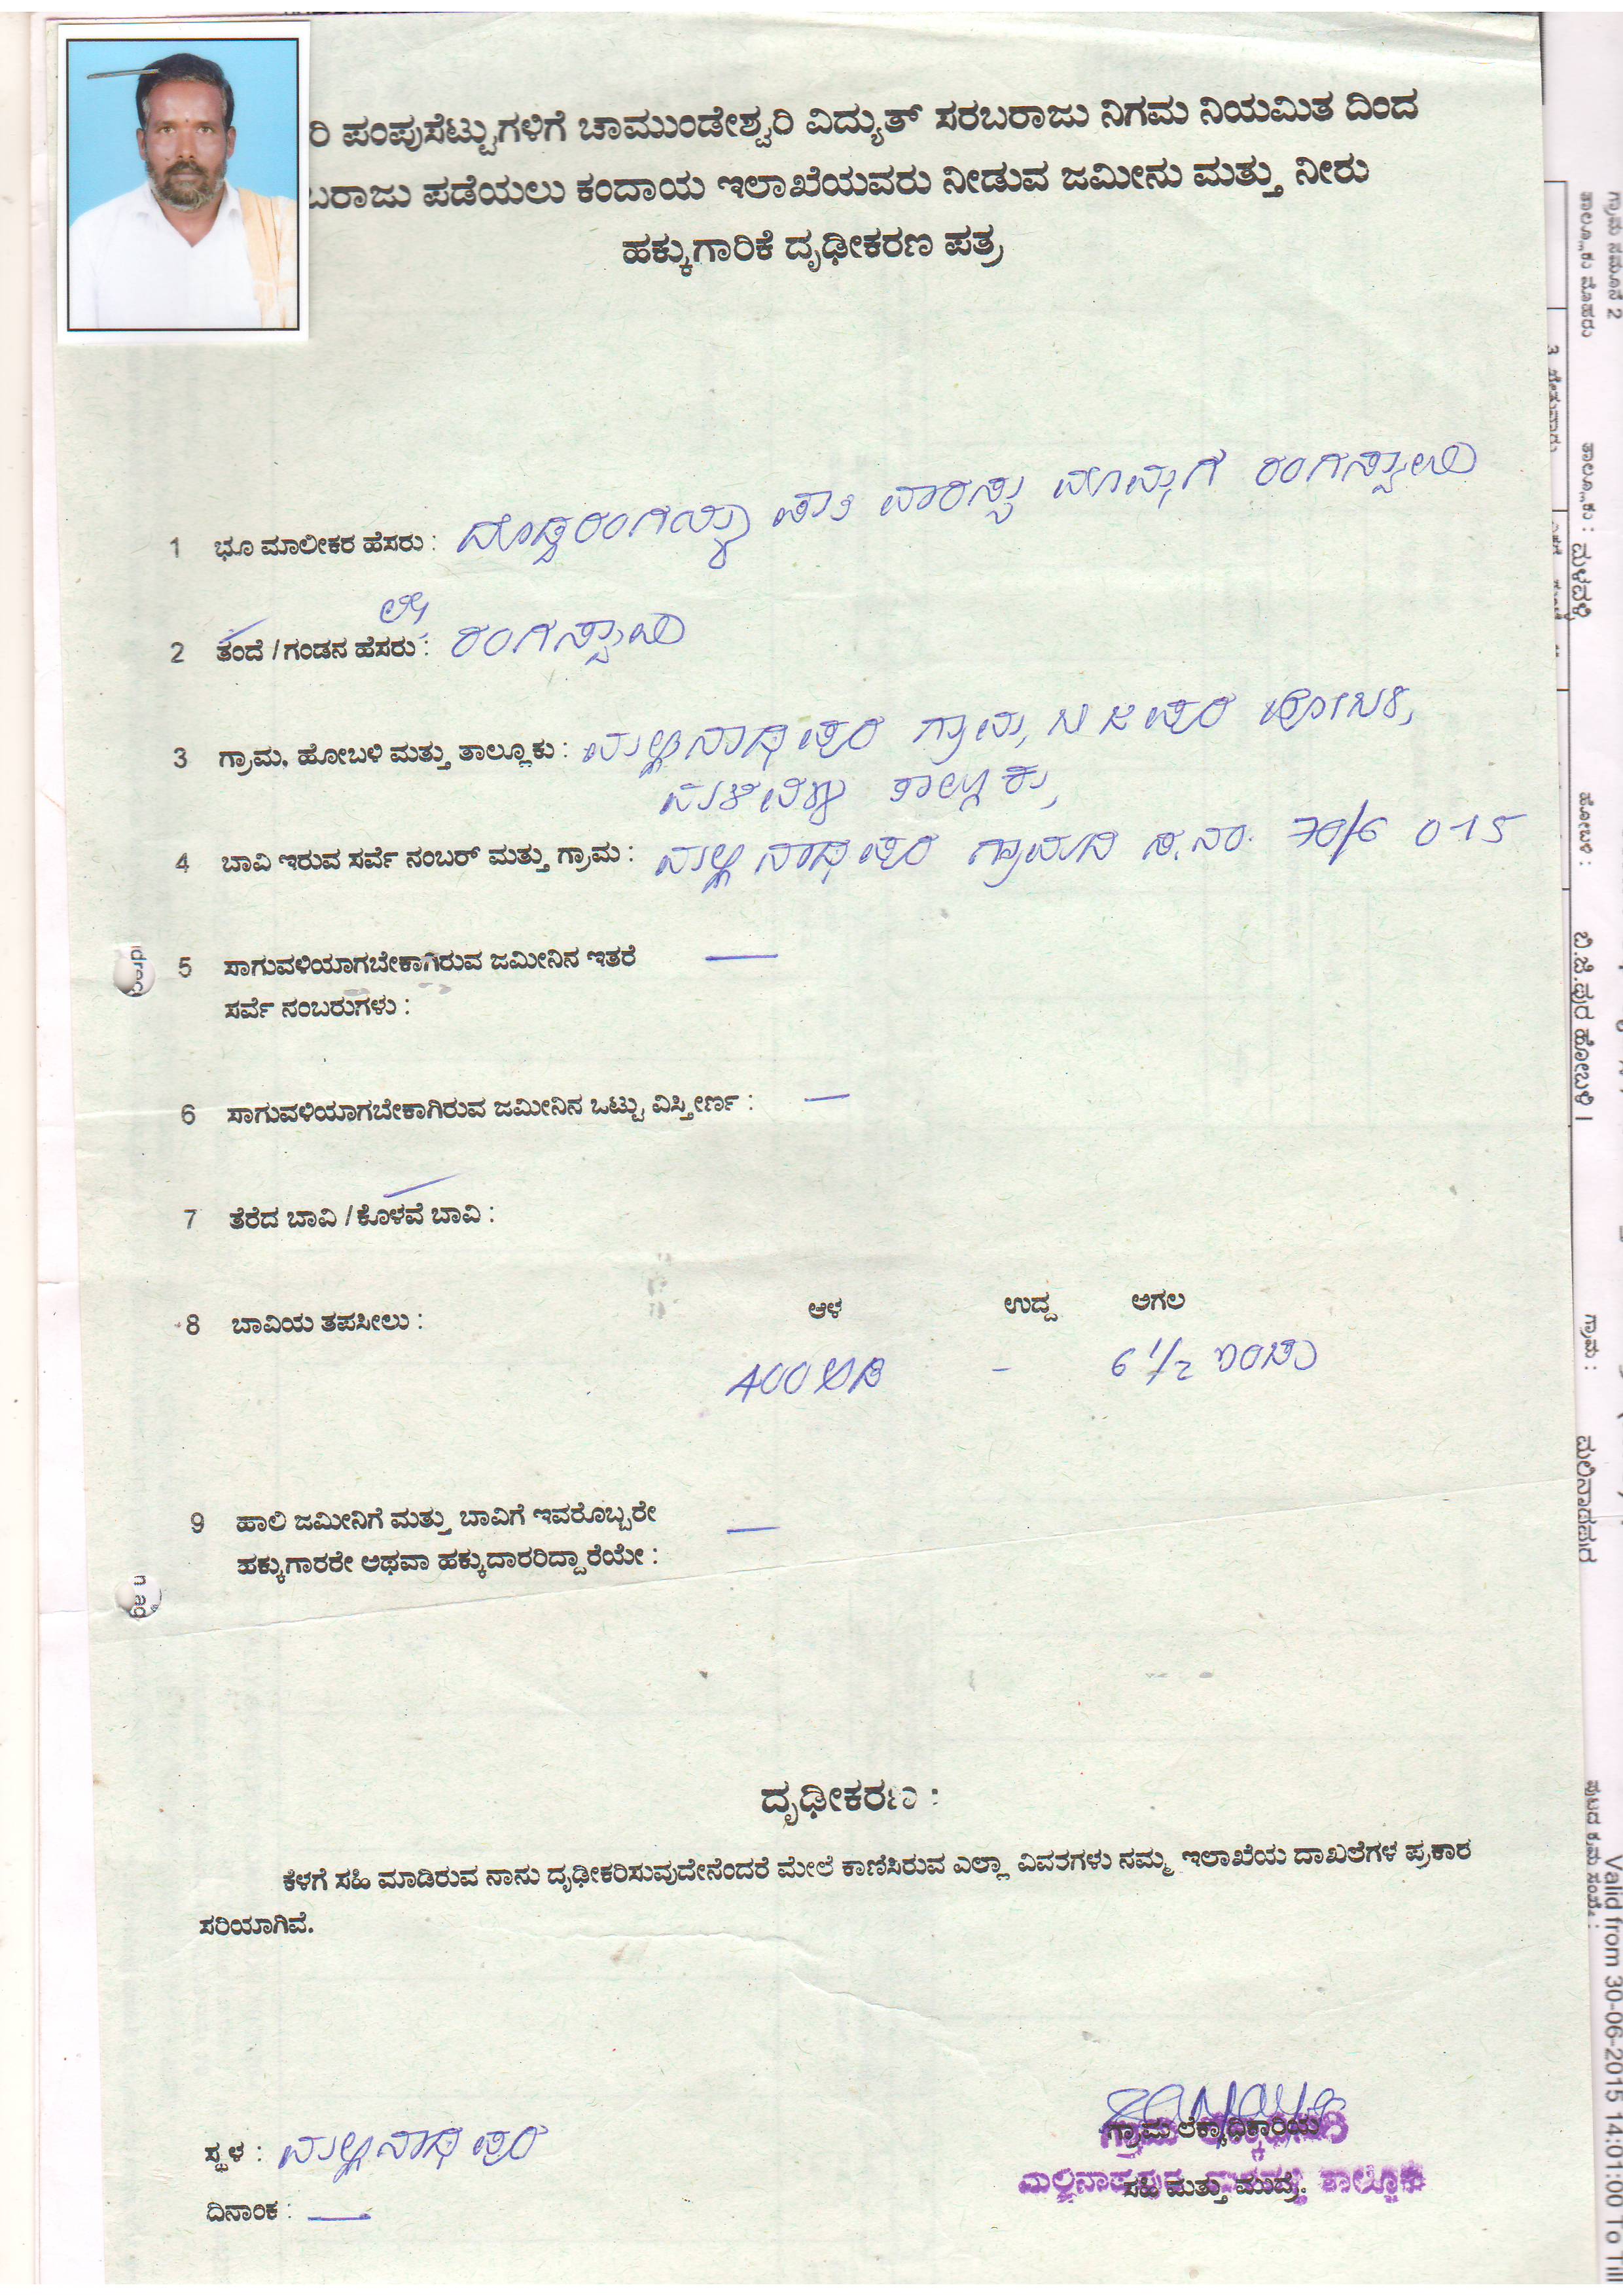 ರಿ ಪಂಪುಸೆಟ್ಟುಗಳಿಗೆ ಚಾಮುಂಡೇಶ್ವರಿ ವಿದ್ಯುತ್ ಸರಬರಾಜು ನಿಗಮ ನಿಯಮಿತ ದಿಂದ
ಬರಾಜು ಪಡೆಯಲು ಕಂದಾಯ ಇಲಾಖೆಯವರು ನೀಡುವ ಜಮೀನು ಮತ್ತು ನೀರು
ಹಕ್ಕುಗಾರಿಕೆ ದೃಢೀಕರಣ ಪತ್ರ
1 ಭೂ ಮಾಲೀಕರ ಹೆಸರು : ದೊಡ್ಡರಂಗಯ್ಯ ವಾರಸ್ಸು ಮೊಮ್ಮಗ ರಂಗಸ್ವಾಮಿ
2 ತಂದೆ / ಗಂಡನ ಹೆಸರು : ರಂಗಸ್ವಾಮಿ
3 ಗ್ರಾಮ, ಹೋಬಳಿ ಮತ್ತು ತಾಲ್ಲೂಕು : ಮಲ್ಲಿನಾಥಪುರ ಗ್ರಾಮ, ಬಿ ಜಿ ಪುರ ಹೋಬಳಿ,
ಮಳವಳ್ಳಿ ತಾಲ್ಲೂಕು,
4 ಬಾವಿ ಇರುವ ಸರ್ವೆ ನಂಬರ್ ಮತ್ತು ಗ್ರಾಮ : ಮಲ್ಲಿನಾಥಪುರ ಗ್ರಾಮದ ಸ.ನಂ. 70/6 0-15
5 ಸಾಗುವಳಿಯಾಗಬೇಕಾಗಿರುವ ಜಮೀನಿನ ಇತರೆ —
ಸರ್ವೆ ನಂಬರುಗಳು :
6 ಸಾಗುವಳಿಯಾಗಬೇಕಾಗಿರುವ ಜಮೀನಿನ ಒಟ್ಟು ವಿಸ್ತೀರ್ಣ : —
7 ತೆರೆದ ಬಾವಿ / ಕೊಳವೆ ಬಾವಿ :
8 ಬಾವಿಯ ತಪಸೀಲು : ಆಳ ಉದ್ದ ಅಗಲ
400 ಅಡಿ - 6 1/2 ಇಂಚು
9 ಹಾಲಿ ಜಮೀನಿಗೆ ಮತ್ತು ಬಾವಿಗೆ ಇವರೊಬ್ಬರೇ —
ಹಕ್ಕುಗಾರರೇ ಅಥವಾ ಹಕ್ಕುದಾರರಿದ್ದಾರೆಯೇ :
ದೃಢೀಕರಣ :
ಕೆಳಗೆ ಸಹಿ ಮಾಡಿರುವ ನಾನು ದೃಢೀಕರಿಸುವುದೇನೆಂದರೆ ಮೇಲೆ ಕಾಣಿಸಿರುವ ಎಲ್ಲಾ ವಿವರಗಳು ನಮ್ಮ ಇಲಾಖೆಯ ದಾಖಲೆಗಳ ಪ್ರಕಾರ
ಸರಿಯಾಗಿವೆ.
ಸ್ಥಳ : ಮಲ್ಲಿನಾಥಪುರ
ದಿನಾಂಕ : —
ಗ್ರಾಮ ಲೆಕ್ಕಾಧಿಕಾರಿಯ
ಸಹಿ ಮತ್ತು ಮುದ್ರೆ.
ಗ್ರಾಮ ನಮೂನೆ 2
ತಾಲ್ಲೂಕು : ಮಳವಳ್ಳಿ
ಹೋಬಳಿ : ಬಿ.ಜಿ.ಪುರ ಹೋಬಳಿ 1
ಗ್ರಾಮ : ಮಲಿನಾಥಪುರ
Valid from 30-06-2015 14:01:00 To Till